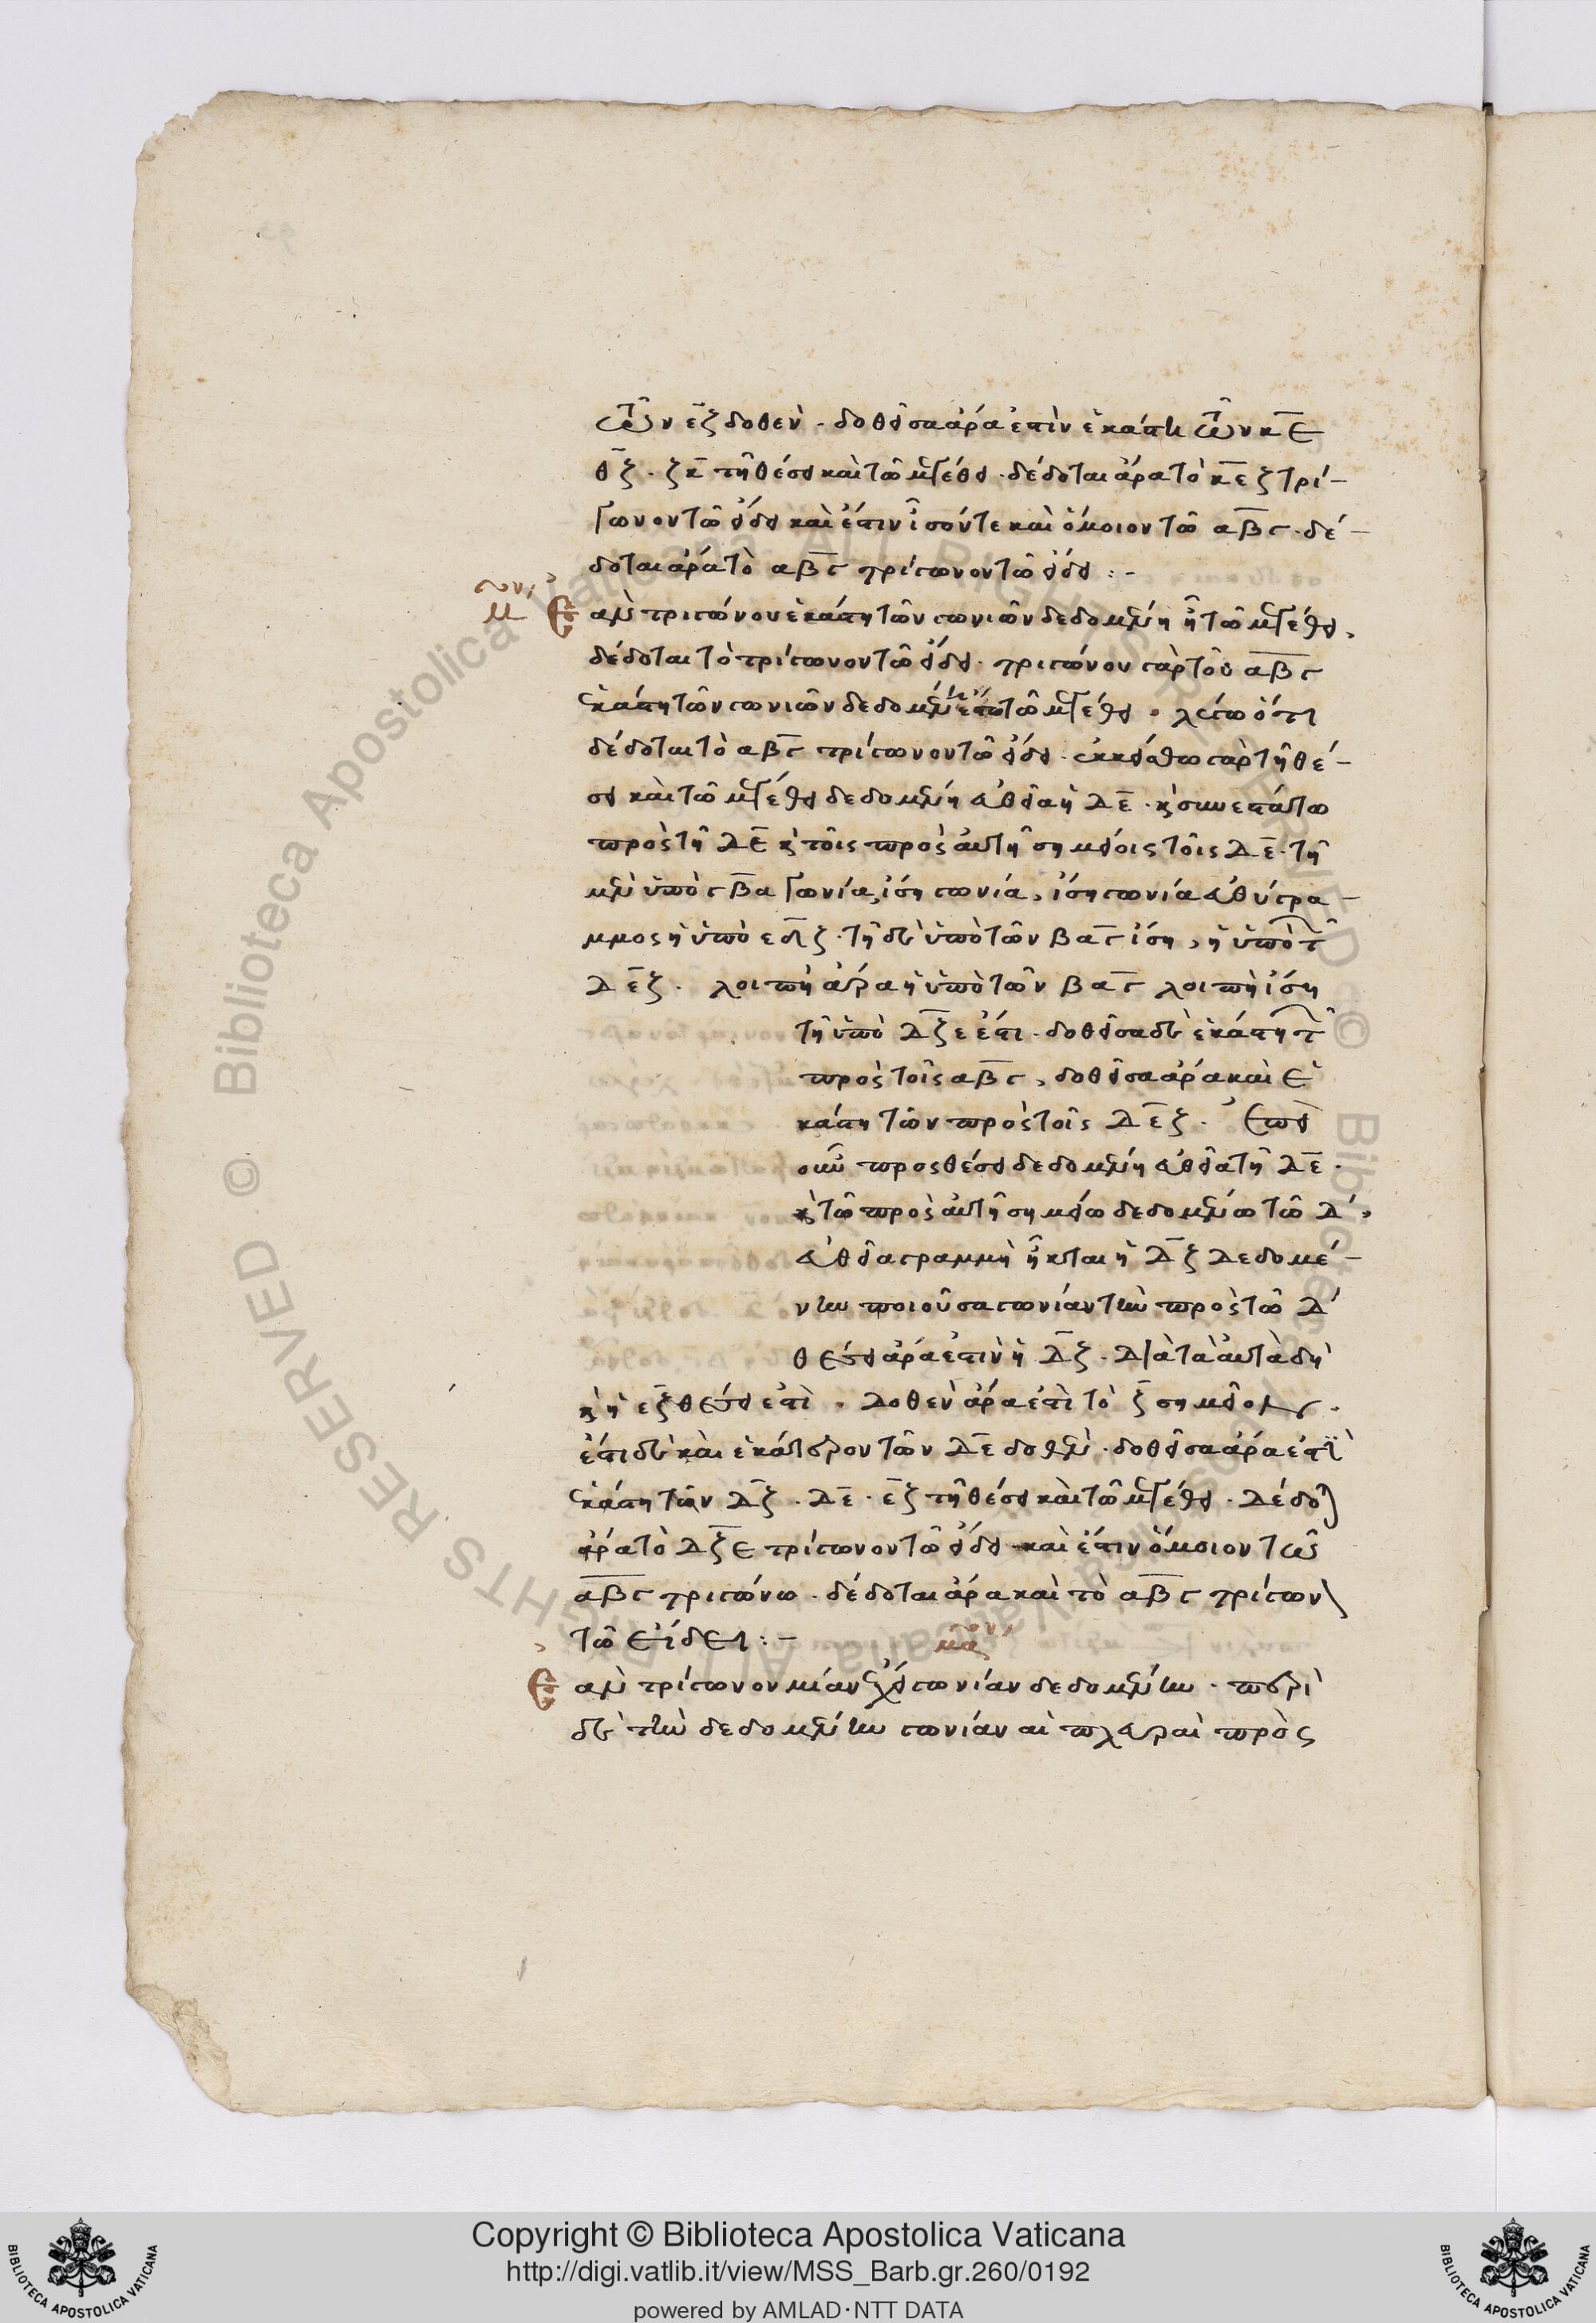 τῶν εζ δοθέν · δοθεῖσα ἄρα ἐστὶν ἑκάστη τῶν κε
θζ · ζκ τῆ θέσει καὶ τῶ μεγέθει · δέδοται ἄρα τὸ κεζ τρί-
γωνον τῶ εἴδει καὶ ἔστιν ἴσόν τε καὶ ὅμοιον τῶ αβγ · δέ-
δοται ἄρα τὸ αβγ τρίγωνον τῶ εἴδει :-
μ
Ἐὰν τριγώνου ἑκάστη τῶν γωνιῶν δεδομένη ἦ τῶ μεγέθει,
δέδοται τὸ τρίγωνον τῶ εἴδει · τριγώνου γὰρ τοῦ αβγ
ἑκάστη τῶν γωνιῶν δεδομένη ἔστω τῶ μεγέθει · λέγω ὅτι
δέδοται τὸ αβγ τρίγωνον τῶ εἴδει · ἐκκείσθω γὰρ τῆ θέ-
σει καὶ τῶ μεγέθει δεδομένη εὐθεῖα ἡ δε · καὶ συνεστάτω
πρὸς τῆ δε καὶ τοῖς πρὸς αὐτῆ σημείοις τοῖς δε · τῆ
μὲν ὑπὸ γβα γωνία, ἴση γωνία, ἴση γωνία εὐθύγρα-
μμος ἡ ὑπὸ εδζ · τῆ δὲ ὑπὸ τῶν βαγ ἴση, ἡ ὑπὸ τῶν
δεζ · λοιπὴ ἄρα ἡ ὑπὸ τῶν βαγ λοιπὴ ἴση
τῆ ὑπὸ δζε ἐστι · δοθεῖσα δὲ ἑκάστη τῶν
πρὸς τοῖς αβγ, δοθεῖσα ἄρα καὶ ἑ
κάστη τῶν πρὸς τοῖς δεζ · ἐπεὶ
οὖν πρὸς θέσει δεδομένη εὐθεῖα τῆ δε ·
καὶ τῶ πρὸς αὐτῆ σημείω δεδομένω τῶ δ,
εὐθεῖα γραμμὴ ἦκται ἡ δζ δεδομέ-
νην ποιοῦσα γωνίαν τὴν πρὸς τῶ δ
θέσει ἄρα ἐστὶν ἡ δζ · διὰ τὰ αὐτὰ δὴ
καὶ ἡ εζ θέσει ἐστὶ · δοθὲν ἄρα ἐστὶ τὸ ζ σημεῖον ·
ἔστι δὲ καὶ ἑκάτερον τῶν δε δοθὲν · δοθεῖσα ἄρα ἐστὶ
ἑκάστη τῶν δζ · δε · εζ τῆ θέσει καὶ τῶ μεγέθει · δέδοται
ἄρα τὸ δζε τρίγωνον τῶ εἴδει καὶ ἔστιν ὅμοιον τῶ
αβγ τριγώνω · δέδοται ἄρα καὶ τὸ αβγ τρίγωνον
τῶ εἴδει :-
μα
Ἐὰν τρίγωνον μίαν ἔχει γωνίαν δεδομένην · περὶ
δὲ τὴν δεδομένην γωνίαν αἱ πλευραὶ πρὸς
Copyright © Biblioteca Apostolica Vaticana
http://digi.vatlib.it/view/MSS_Barb.gr.260/0192
powered by AMLAD·NTT DATA